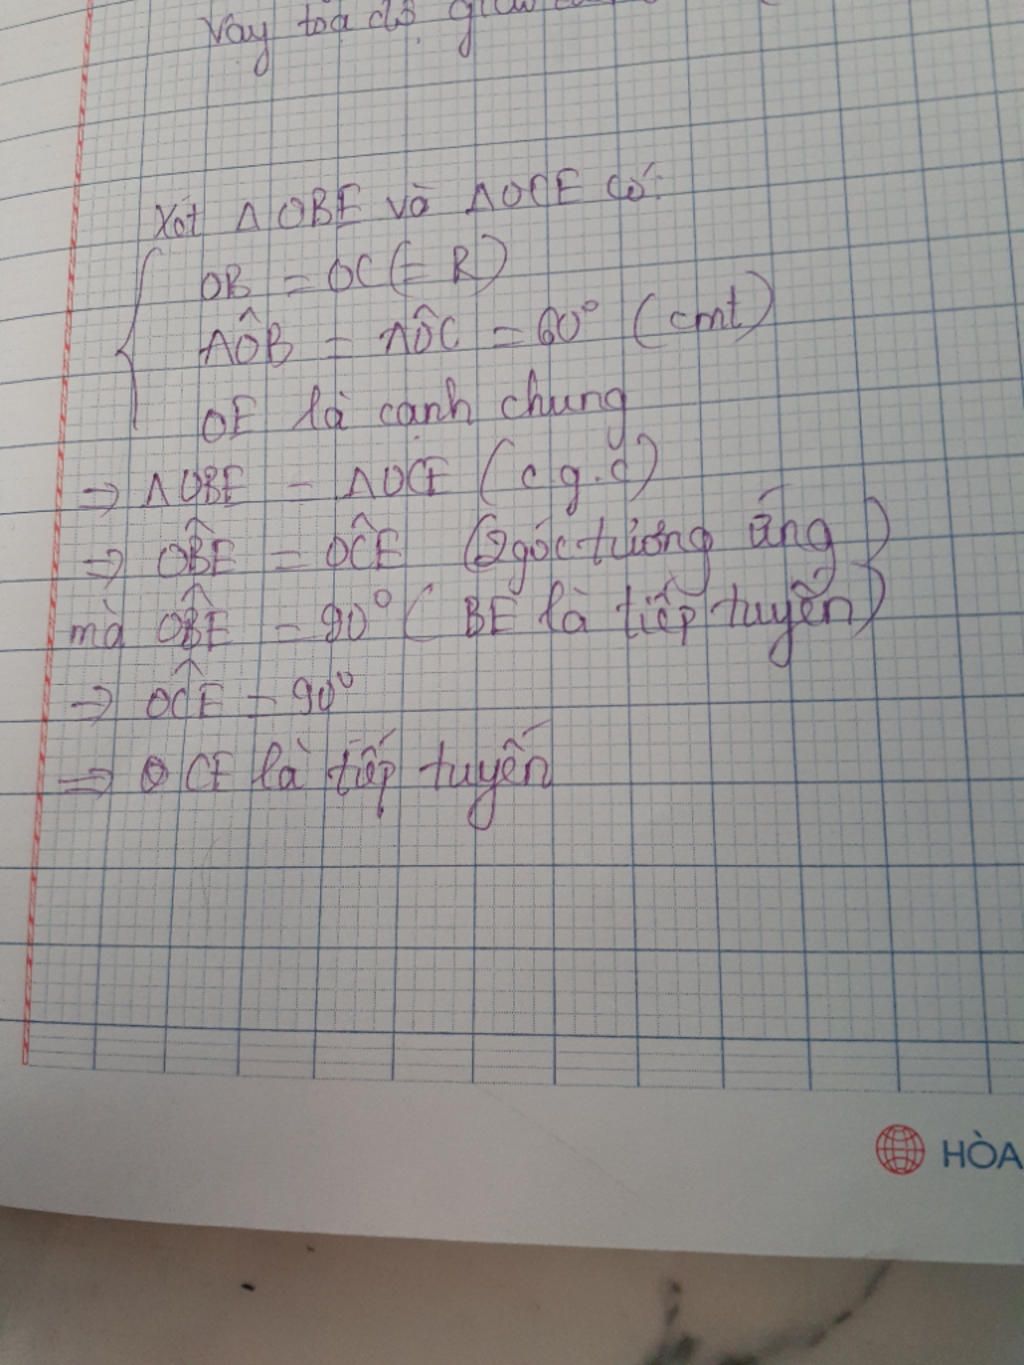 Vậy tọa độ giao
Xét ΔOBE và ΔOCE có:
OB = OC (= R)
AÔB = AÔC = 60° (cmt)
OE là cạnh chung
⇒ ΔOBE = ΔOCE (c.g.c)
⇒ OB̂E = OĈE (2 góc tương ứng)
mà OB̂E = 90° (BE là tiếp tuyến)
⇒ OĈE = 90°
⇒ CE là tiếp tuyến
HÒA